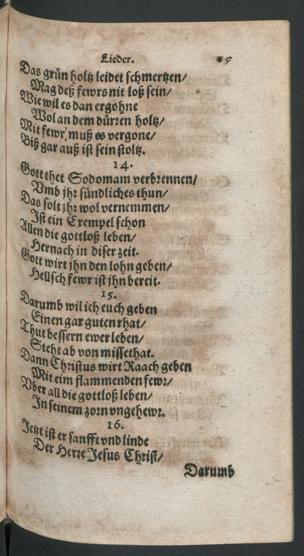 Lieder.
Das grün holtz leidet schmertzen/
Mag deß fewrs nit loß sein/
Wie wil es dan ergohne
Wol an dem dürren holtz/
Mit fewr/ muß es vergone/
Biß gar auß ist sein stoltz.
14.
Gott thet Sodomam verbrennen/
Vmb jhr sündliches thun/
Das solt jhr wol vernemmen/
Ist ein Exempel schon
Allen die gottloß leben/
Hernach in diser zeit.
Gott wirt jhn den lohn geben/
Hellsch fewr ist jhn bereit.
15.
Darumb wil ich euch geben
Einen gar guten rhat/
Thut bessern ewer leben/
Steht ab von missethat.
Dann Christus wirt Raach geben
Mit eim flammenden fewr/
Vber all die gottloß leben/
In seinem zorn vngehewr.
16.
Jetzt ist er sanfft vnd linde
Der Herre Jesus Christ/
Darumb